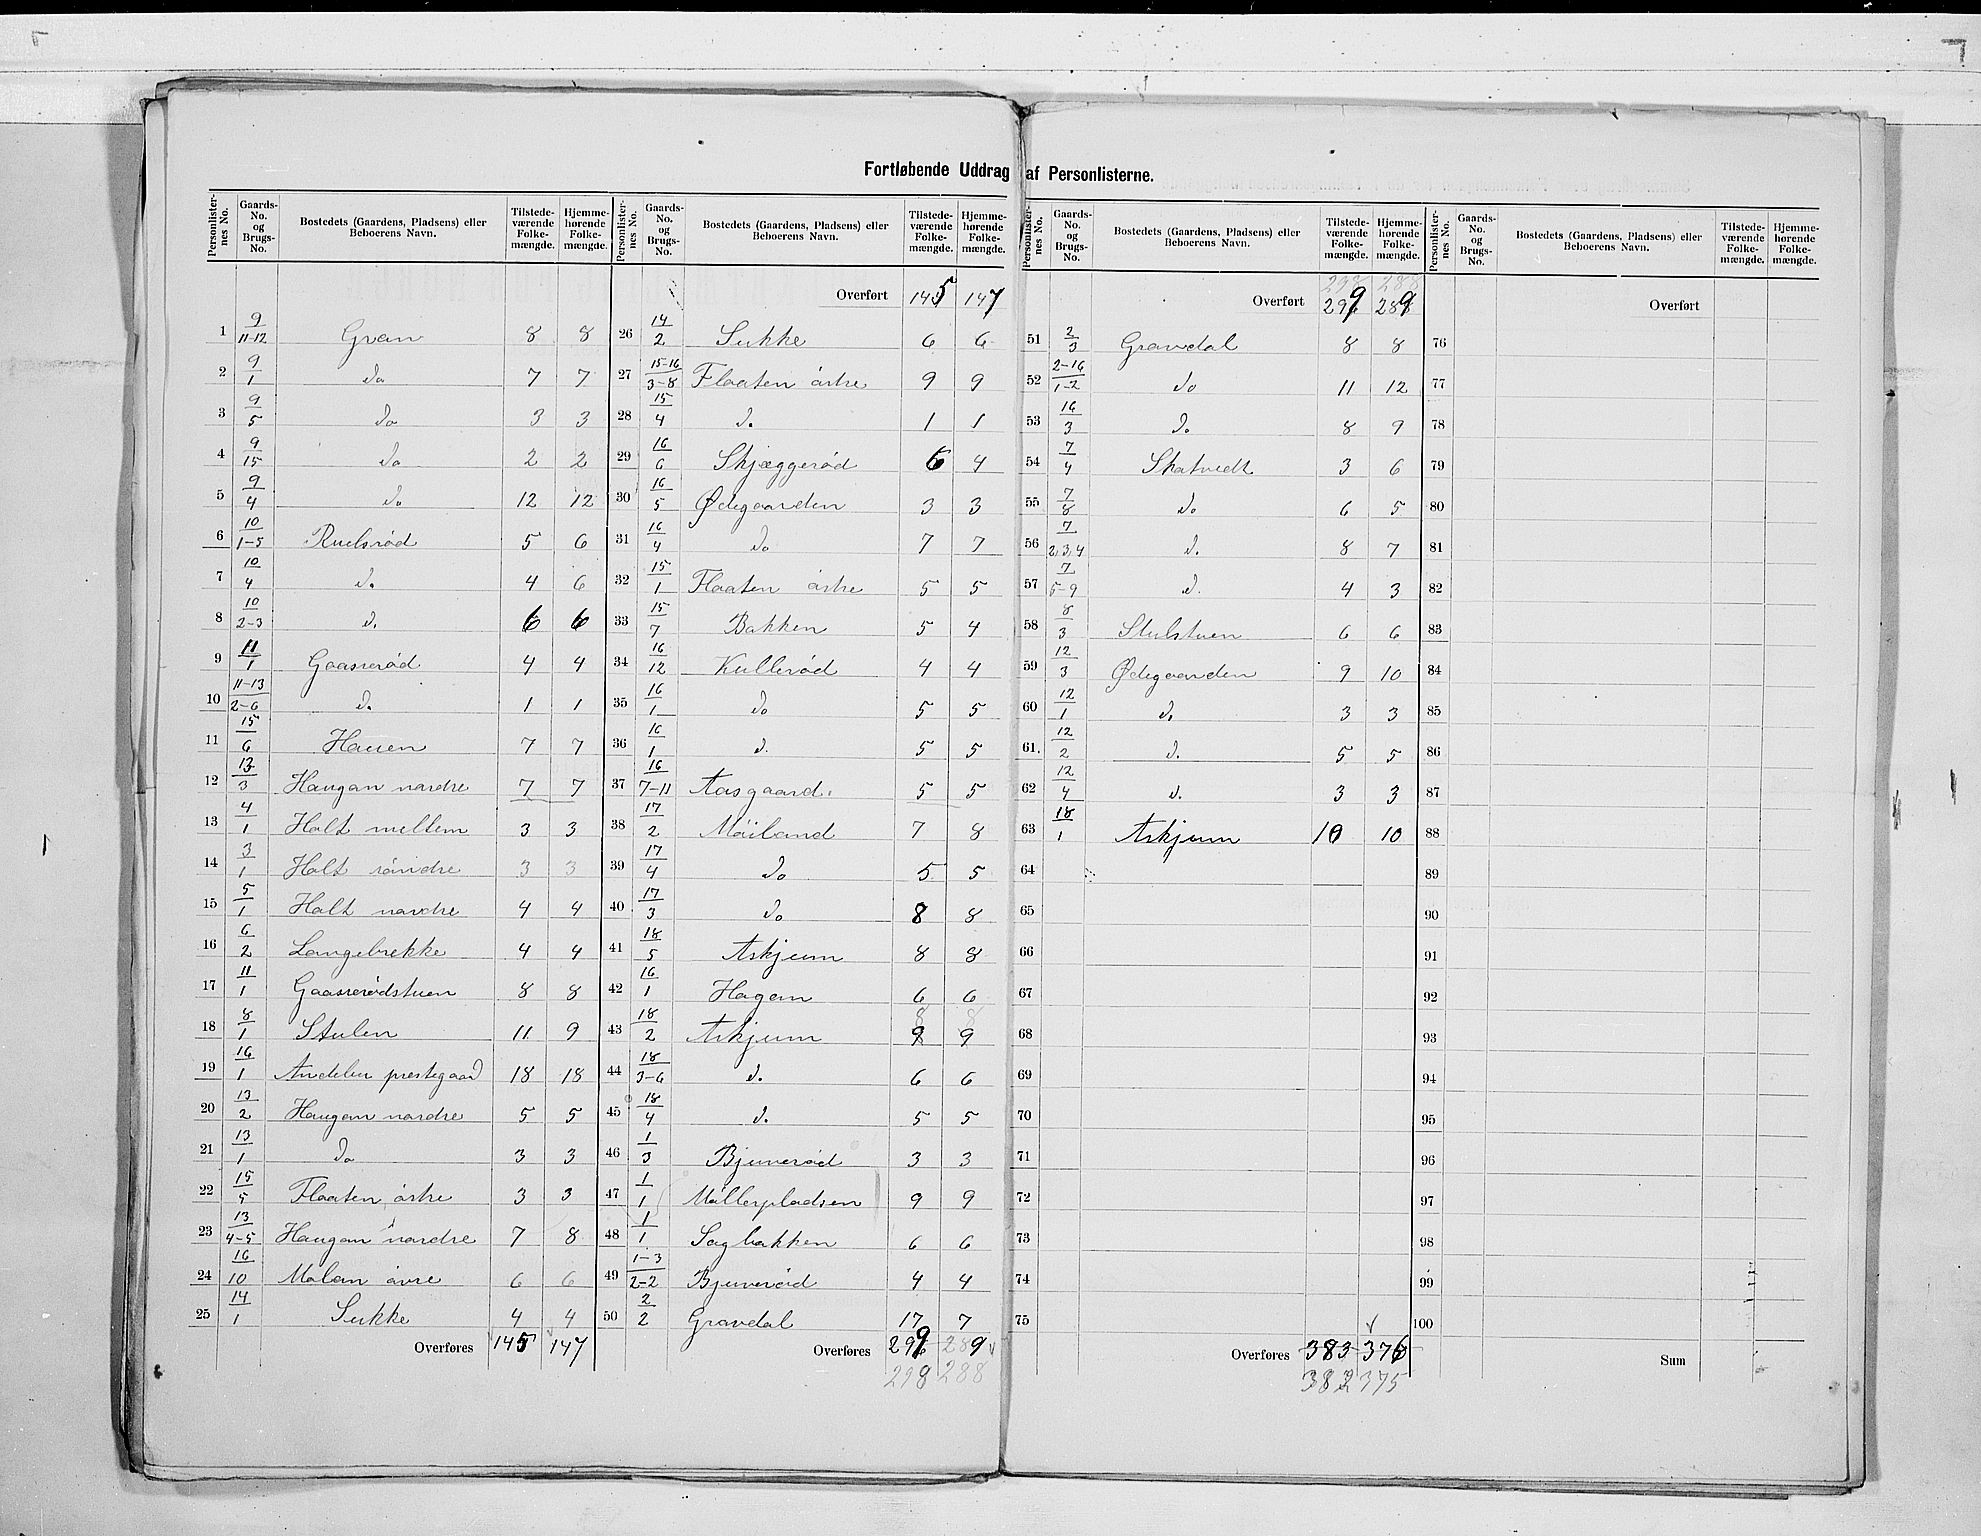 Fortløbende Uddrag af Personlisterne.
Personlister-nes No. Gaards-No. og Brugs-No. Bostedets (Gaardens, Pladsens) eller Beboerens Navn. Tilstede-værende Folke-mængde. Hjemme-hørende Folke-mængde.
1 9/11-12 Gran 8 8
2 9/1 do 7 7
3 9/5 do 3 3
4 9/15 do 2 2
5 9/4 do 12 12
6 10/1-5 Ruelsrød 5 6
7 10/4 d. 4 6
8 10/2-3 d. 6 6
9 11/1 Gaaserød 4 4
10 11-13/2-6 d. 1 1
11 15/6 Hauen 7 7
12 13/3 Haugan nordre 7 7
13 4/1 Holt mellem 3 3
14 3/1 Holt søndre 3 3
15 5/1 Holt nordre 4 4
16 6/2 Langebrekke 4 4
17 11/1 Gaaserødstuen 8 8
18 8/1 Stulen 11 9
19 16/1 Andebu prestegaard 18 18
20 13/2 Haugan nordre 5 5
21 13/1 do 3 3
22 15/5 Flaaten østre 3 3
23 13/4-5 Haugan nordre 7 8
24 16/10 Molan øvre 6 6
25 14/1 Sukke 4 4
Overføres 145 147
Personlister-nes No. Gaards-No. og Brugs-No. Bostedets (Gaardens, Pladsens) eller Beboerens Navn. Tilstede-værende Folke-mængde. Hjemme-hørende Folke-mængde.
Overført 145 147
26 14/2 Sukke 6 6
27 15-16/3-8 Flaaten østre 9 9
28 15/4 d. 1 1
29 16/6 Skjæggerød 6 4
30 16/5 Ødegaarden 3 3
31 16/4 do 7 7
32 15/1 Flaaten østre 5 5
33 15/7 Bakken 5 4
34 16/12 Kullerød 4 4
35 16/1 do 5 5
36 16/1 d. 5 5
37 16/7-11 Aasgaard 5 5
38 17/2 Møiland 7 8
39 17/4 do 5 5
40 17/3 do 8 8
41 18/5 Askjum 8 8
42 16/1 Hagen 6 6
8 8
43 18/2 Askjum 9 9
44 18/3-6 d. 6 6
45 18/4 d. 5 5
46 1/3 Bjuerød 3 3
47 1/1 Møllerpladsen 9 9
48 1/1 Sagbakken 6 6
49 1-3/2-2 Bjuerød 4 4
50 2/2 Gravdal 17 7
Overføres 299 289
298 288
Personlister-nes No. Gaards-No. og Brugs-No. Bostedets (Gaardens, Pladsens) eller Beboerens Navn. Tilstede-værende Folke-mængde. Hjemme-hørende Folke-mængde.
298 288
Overført 299 289
51 2/3 Gravdal 8 8
52 2-16/1-2 do 11 12
53 16/3 d. 8 9
54 7/4 Skatvedt 3 6
55 7/8 do 6 5
56 7/2,3,4 d. 8 7
57 7/5-9 d. 4 3
58 8/3 Stulstuen 6 6
59 12/3 Ødegaarden 9 10
60 12/1 d. 3 3
61. 12/2 d. 5 5
62 12/4 d. 3 3
63 18/1 Askjum 10 10
64
65
66
67
68
69
70
71
72
73
74
75
Overføres 383 376
382 375
Personlister-nes No. Gaards-No. og Brugs-No. Bostedets (Gaardens, Pladsens) eller Beboerens Navn. Tilstede-værende Folke-mængde. Hjemme-hørende Folke-mængde.
Overført
76
77
78
79
80
81
82
83
84
85
86
87
88
89
90
91
92
93
94
95
96
97
98
99
100
Sum